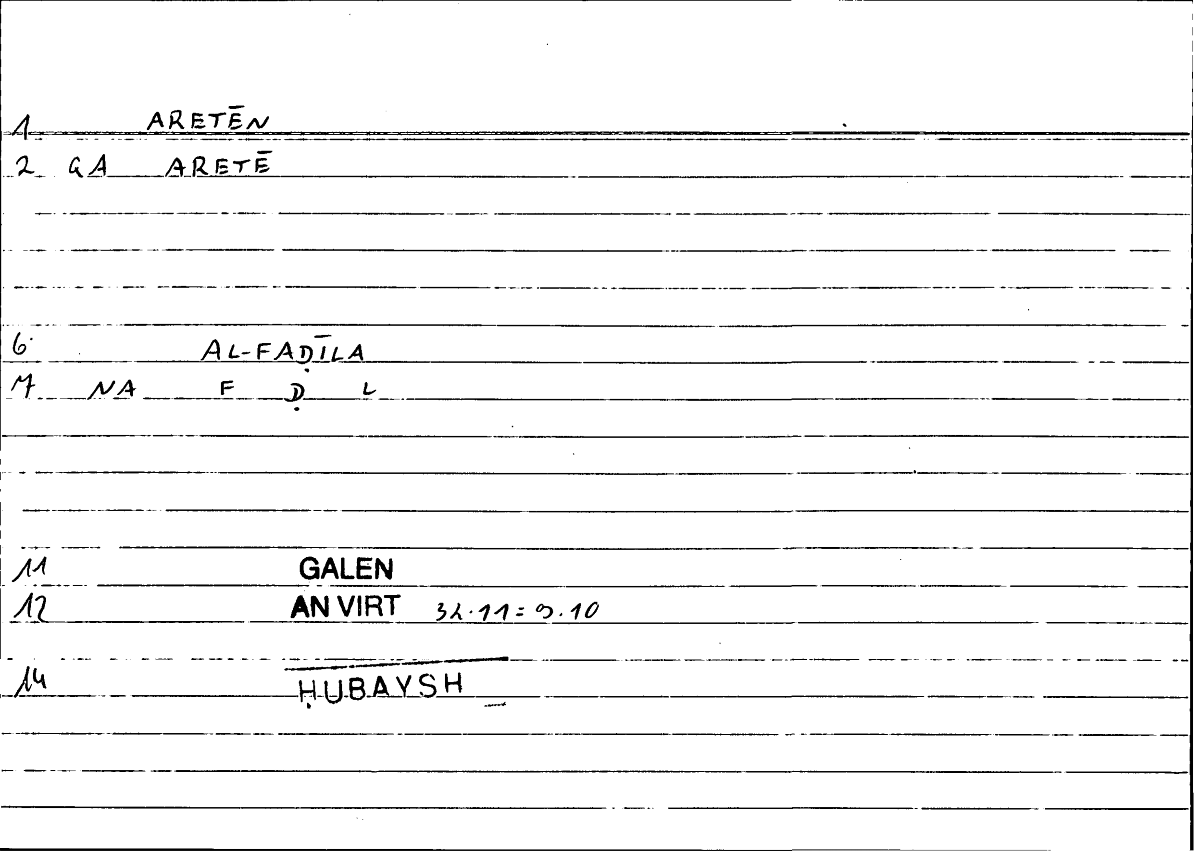 1 ARETĒN
2 GA ARETĒ
6 AL-FAḌĪLA
7 NA F Ḍ L
11 GALEN
12 AN VIRT 32.11=9.10
14 ḤUBAYSH